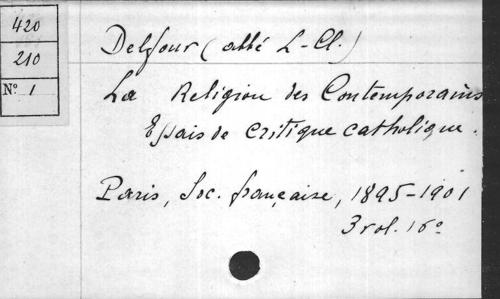 420
210
N° 1
Delfour (abbé L-Cl.)
La Religion des Contemporains
Essais de critique catholique.
Paris, Soc. française, 1895-1901
3 vol. 16°